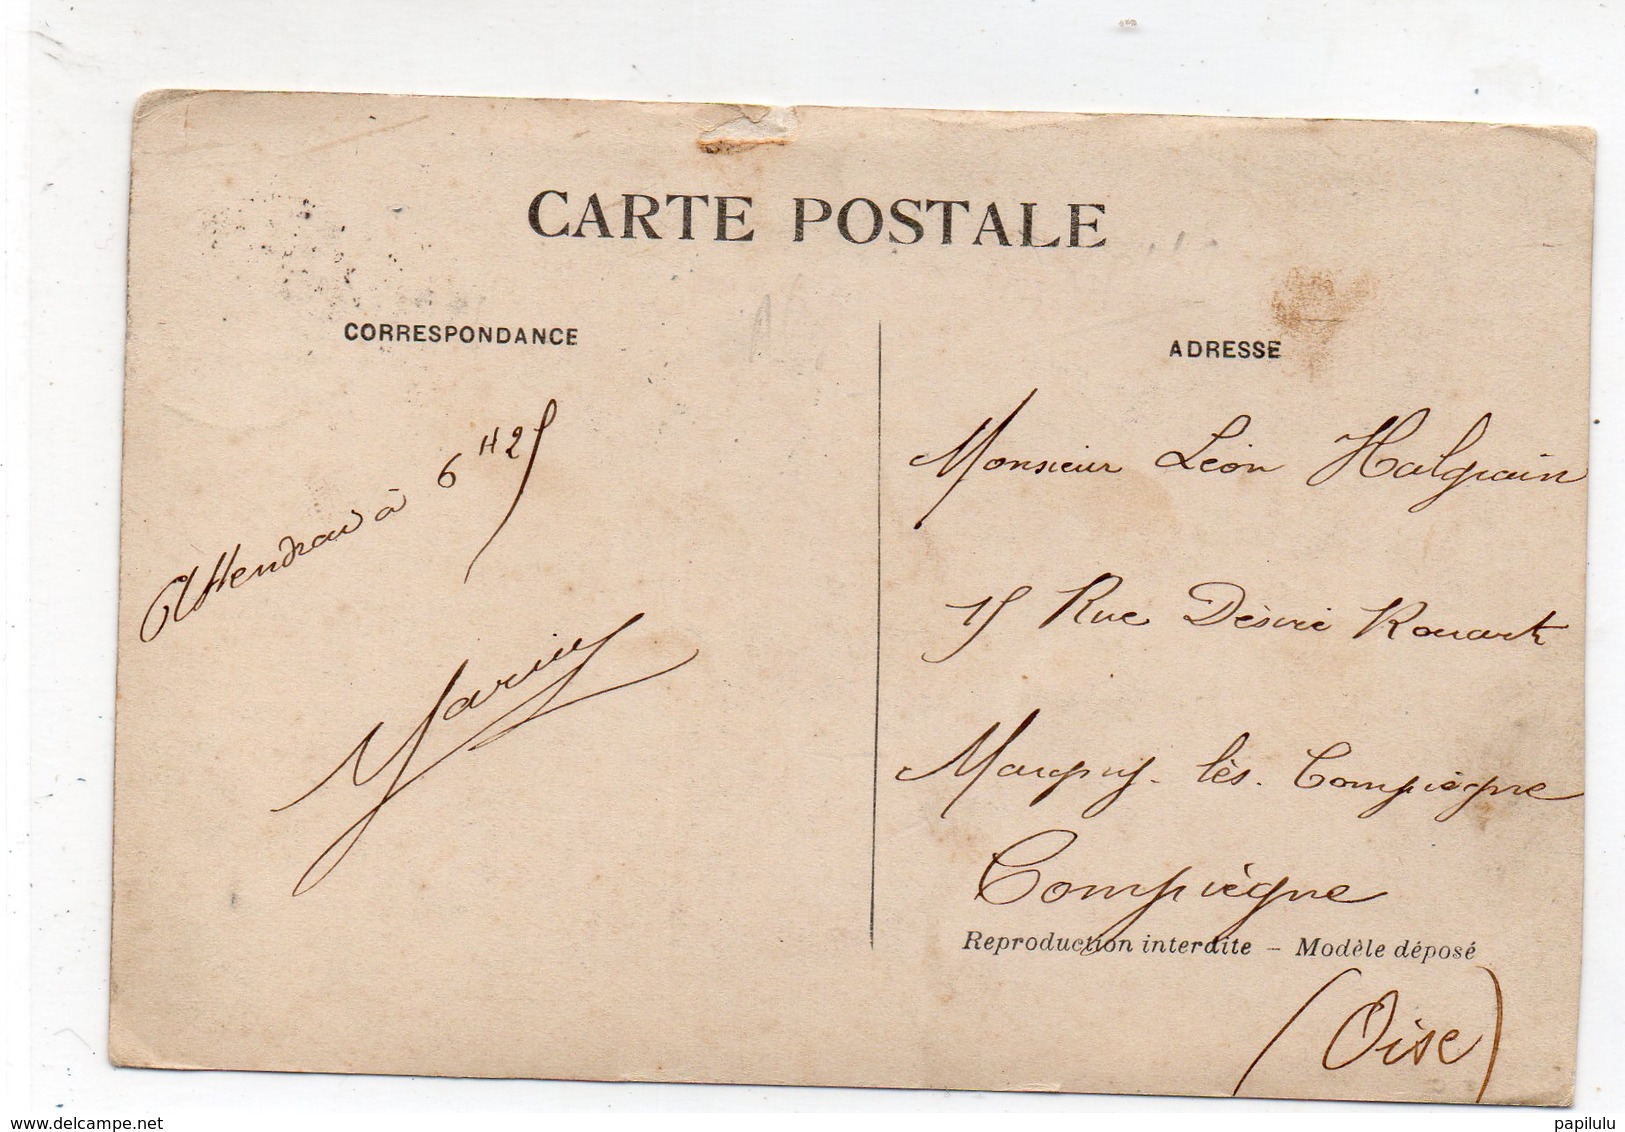 CARTE POSTALE
CORRESPONDANCE
Attendrai à 6 H 25
ADRESSE
Monsieur Léon Halgrain
15 Rue Désiré Rouart
Margny-lès-Compiègne
Compiègne
Reproduction interdite – Modèle déposé
(Oise)
www.delcampe.net
papilulu